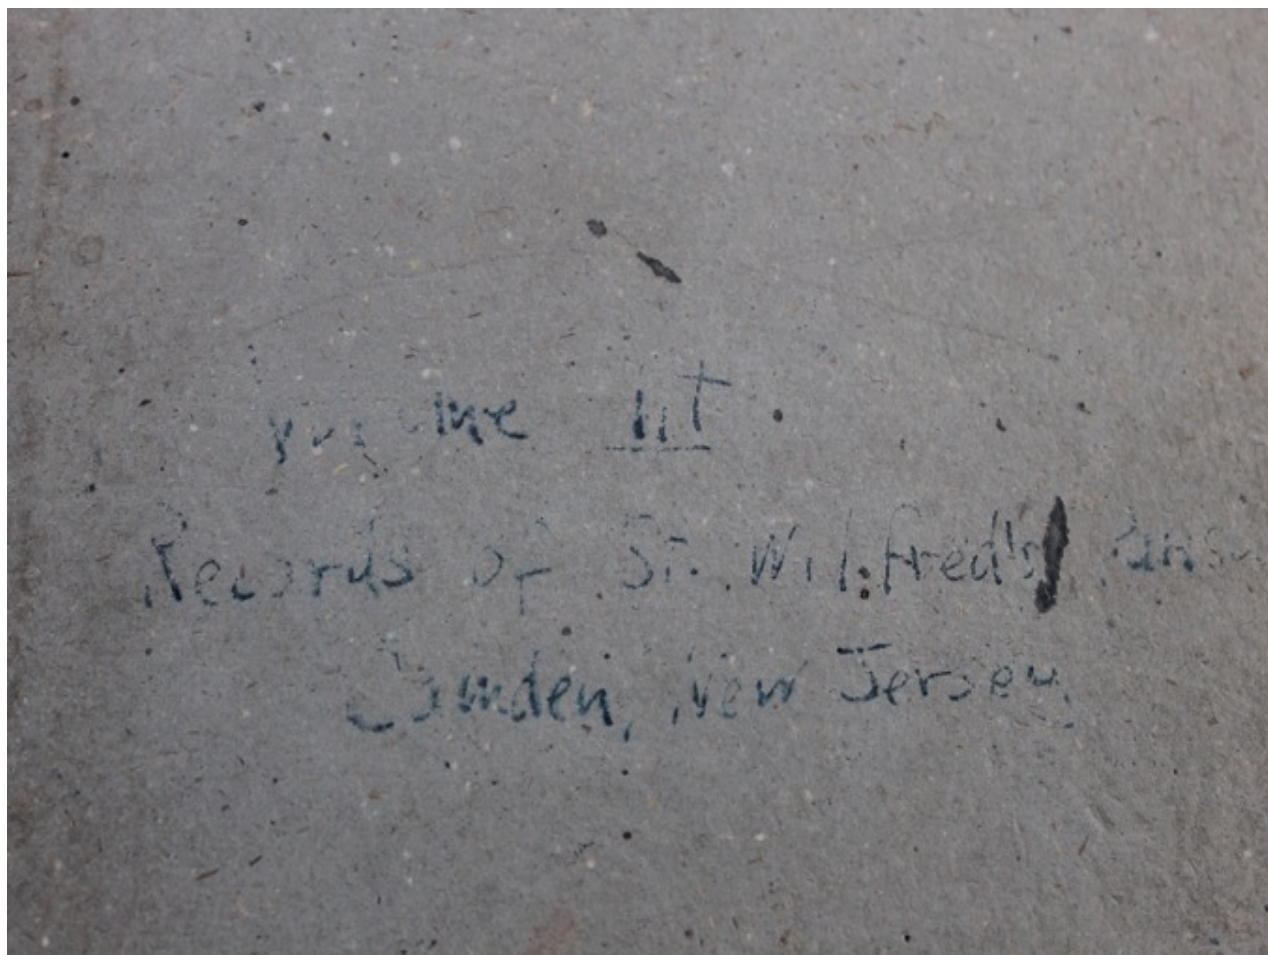 Volume III
Records of St. Wilfred's
Camden, New Jersey